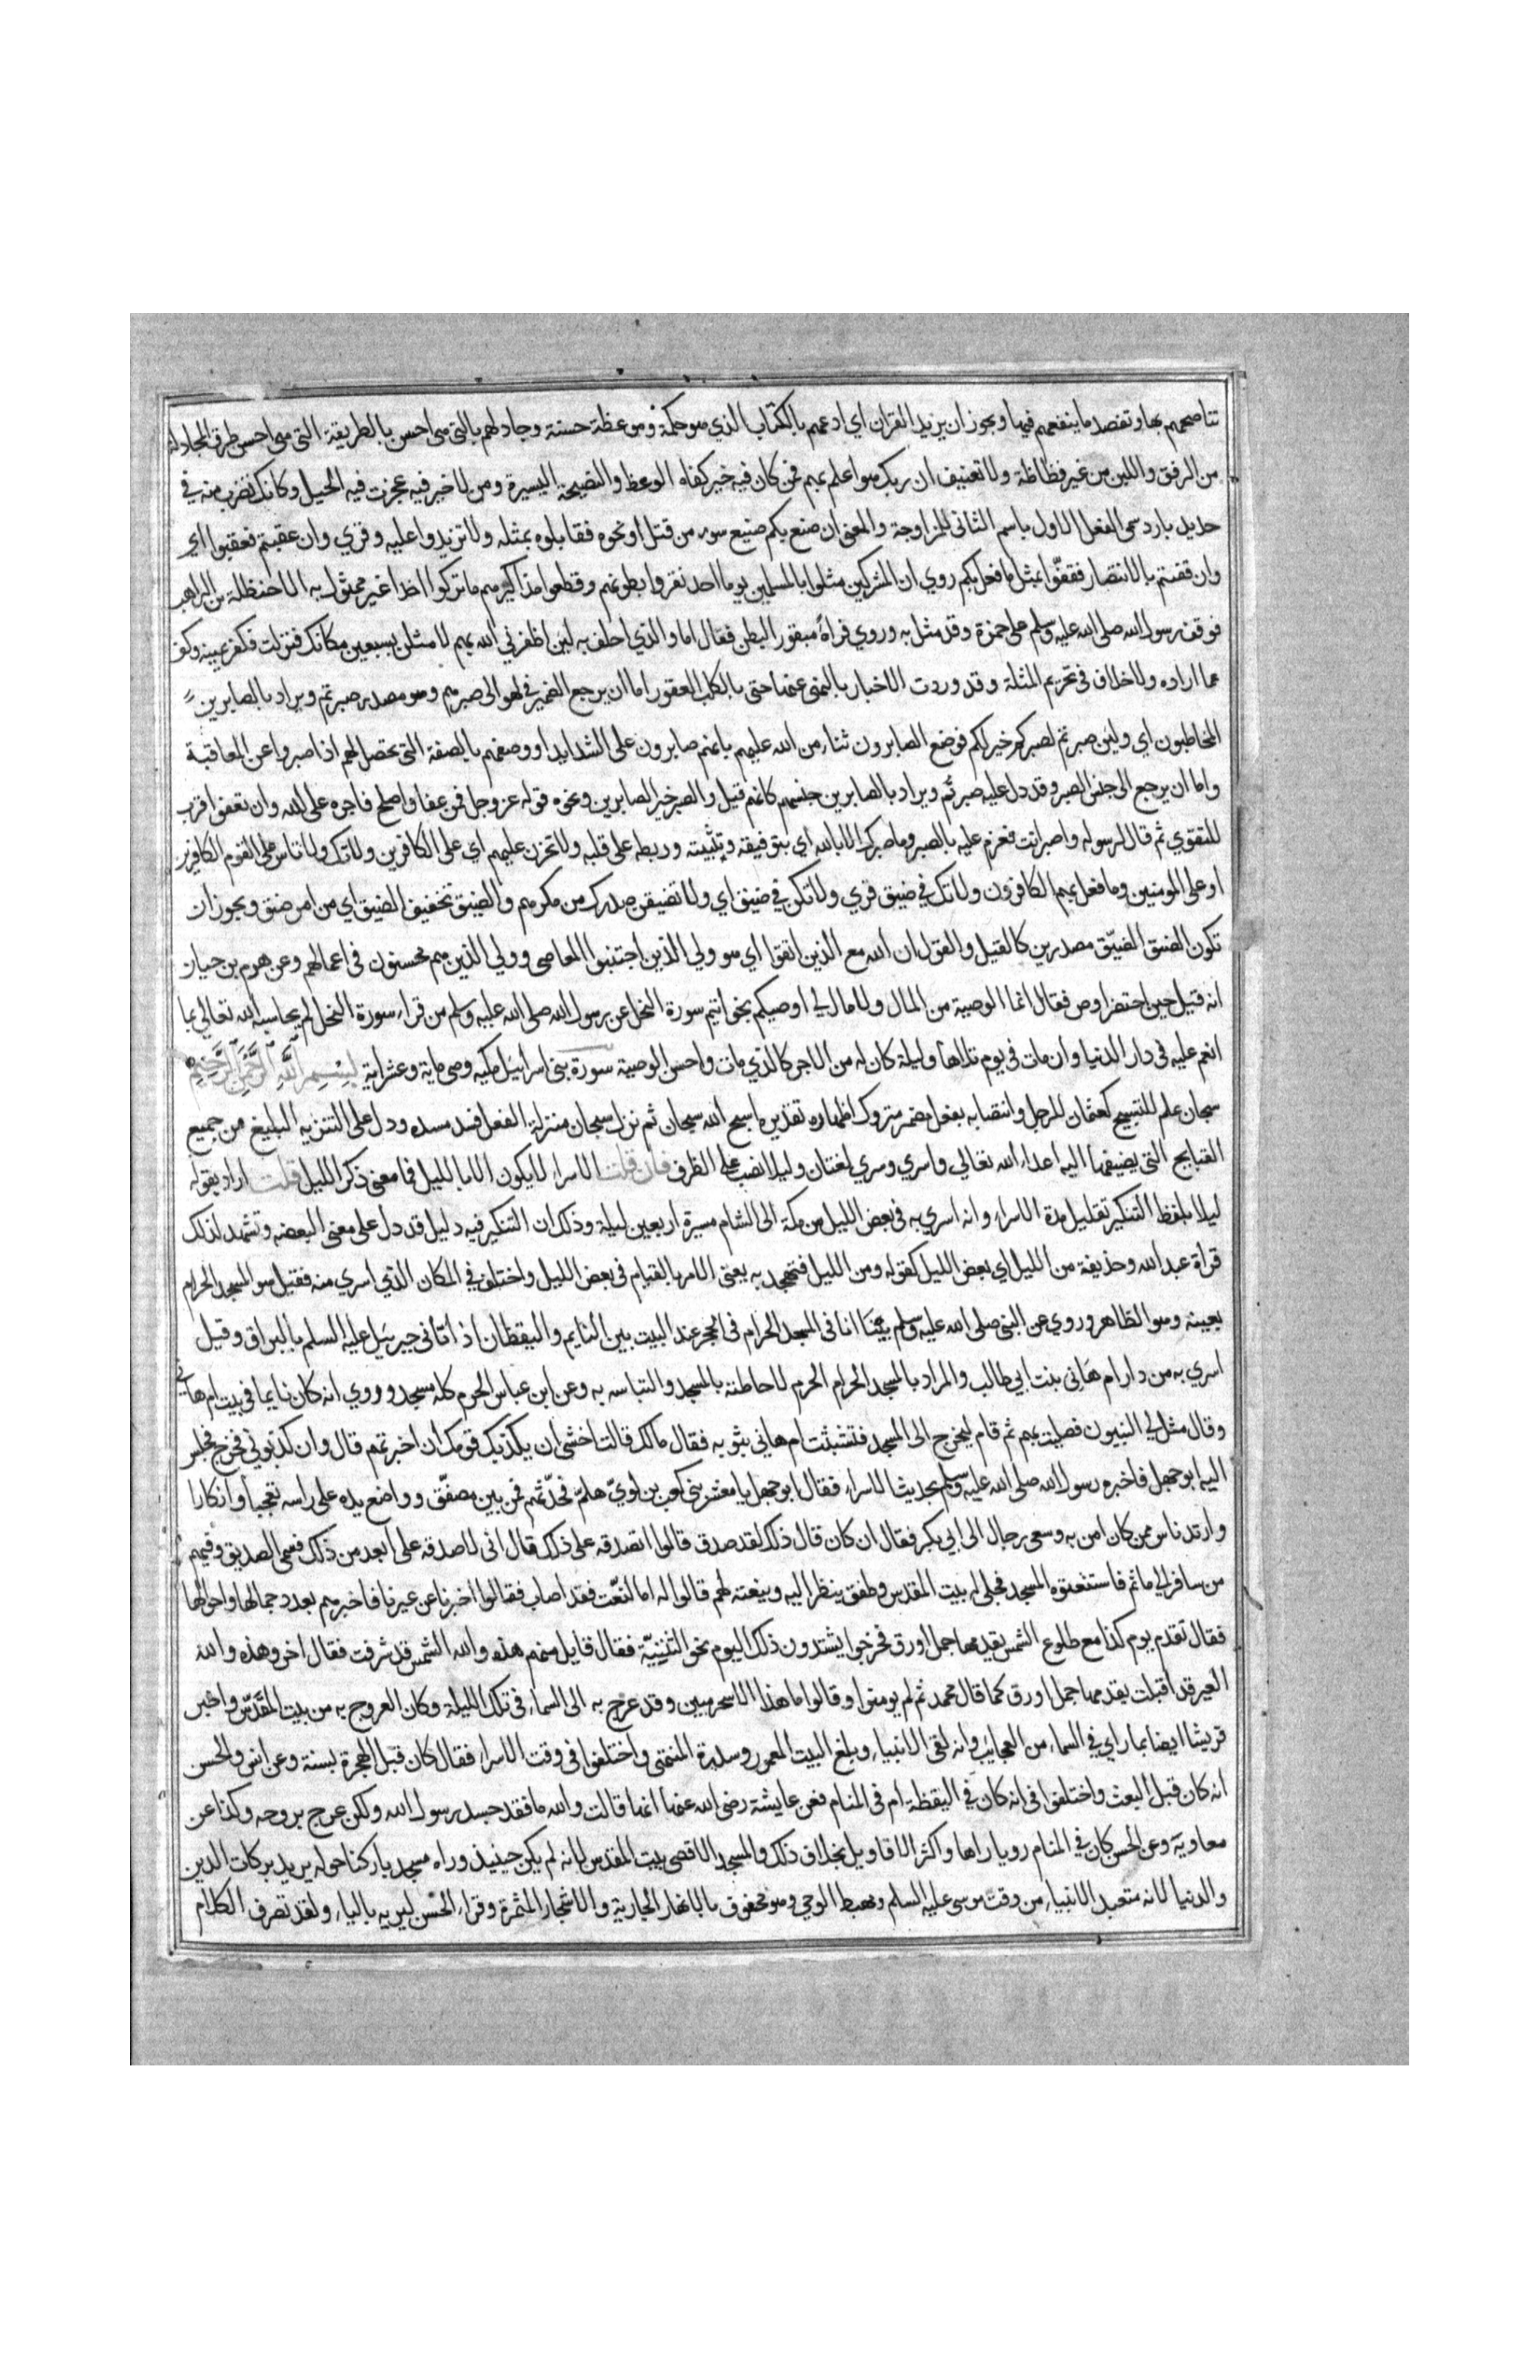 تناصحهم بها وتقصد ما ينفعهم فيها ويجوز ان يريد القران اي ادعهم بالكتاب الذي هو حكمة وموعظة حسنة وجادلهم بالتي هي احسن بالطريقة التي هي احسن طرق المجادلة
من الرفق واللين من غير فظاظة ولا تعنيف ان ربك هو اعلم بهم فمن كان فيه خير كفاه الوعظ والنصيحة اليسيرة ومن لا خير فيه عجزت فيه الحيل وكانك تضرب منه في
حديد بارد سمى الفعل الاول باسم الثاني للمزاوجة والمعنى ان صنع بكم صنيع سوء من قتل او نحوه فقابلوه بمثله ولا تزيدوا عليه وقري وان عقبتم فعقبوا اي
وان قفيتم بالانتصار فقفوا بمثل ما فعل بكم روي ان المشركين مثلوا بالمسلمين يوم احد بقروا بطونهم وقطعوا مذاكيرهم ما تركوا احدا غير ممثول به الا حنظلة بن الراهب
فوقف رسول الله صلى الله عليه وسلم على حمزة وقد مثل به وروي فراه مبقور البطن فقال اما والذي احلف به لين اظفرني الله بهم لامثلن بسبعين مكانك فنزلت فكفر يمينه وكف
عما اراده ولا خلاف في تحريم المثلة وقد وردت الاخبار بالنهي عنها حتى بالكلب العقور اما ان يرجع الضمير في لهو الى صبرهم وهو مصدر صبرتم ويراد بالصابرين
المخاطبون اي ولين صبرتم لصبركم خير لكم فوضع الصابرون ثناء من الله عليهم بانهم صابرون على الشدايد او وصفهم بالصفة التي تحصل لهم اذا صبروا عن المعاقبة
واما ان يرجع الى جنس الصبر وقد دل عليه صبرتم ويراد بالصابرين جنسهم كانه قيل والصبر خير للصابرين ونحوه قوله عز وجل فمن عفا واصلح فاجره على الله وان تعفوا اقرب
للتقوي ثم قال لرسوله واصبر انت فعزم عليه بالصبر وما صبرك الا بالله اي بتوفيقه وتثبيته وربطه على قلبه ولا تحزن عليهم اي على الكافرين ولا تك ولا تاس على القوم الكافرين
او على المومنين وما فعل بهم الكافرون ولا تك في ضيق قري ولا تكن في ضيق اي ولا تضيقن صدرك من مكرهم والضيق تخفيف الضيق اي من امر ضيق ويجوز ان
تكون الضيق الضيق مصدرين كالقيل والقول ان الله مع الذين اتقوا اي هو ولي الذين اجتنبوا المعاصي وولي الذين هم محسنون في اعمالهم وعن هرم بن حيان
انه قيل حين احتضر اوص فقال انما الوصية من المال ولا مال لي اوصيكم بخواتيم سورة النحل عن رسول الله صلى الله عليه وسلم من قراء سورة النحل لم يحاسبه الله تعالى بما
انعم عليه في دار الدنيا وان مات في يوم تلاها وليلة كان له من الاجر كالذي مات واحسن الوصية سورة بني اسرائيل مكيه وهي ماية وعشر اية بسم الله الرحمن الرحيم
سبحان علم للتسبيح كعثمان للرجل وانتصابه بفعل مضمر متروك اظهاره تقديره اسبح الله سبحان ثم نزل سبحان منزلة الفعل فسد مسده ودل على التنزيه البليغ من جميع
القبايح التي يضيفها اليه اعداء الله تعالى واسري وسري لغتان وليلا نصب على الظرف فان قلت الاسراء لا يكون الا بالليل فما معنى ذكر الليل قلت اراد بقوله
ليلا بلفظ التنكير تقليل مدة الاسراء وانه اسري به في بعض الليل من مكة الى الشام مسيرة اربعين ليلة وذلك ان التنكير فيه دليل قد دل على معنى البعضيه وتشهد لذلك
قراة عبد الله وحذيفة من الليل اي بعض الليل كقوله ومن الليل فتهجد به يعني الامر بالقيام في بعض الليل واختلف في المكان الذي اسري منه فقيل هو المسجد الحرام
بعينه وهو الظاهر وروي عن النبي صلى الله عليه وسلم بينا انا في المسجد الحرام في الحجر عند البيت بين النايم واليقظان اذ اتاني جبريل عليه السلم بالبراق وقيل
اسري به من دار ام هاني بنت ابي طالب والمراد بالمسجد الحرام الحرم لاحاطته بالمسجد والتباسه به وعن ابن عباس الحرم كله مسجد وروي انه كان نايما في بيت ام هاني
وقال مثل لي النبيون فصليت بهم ثم قام ليخرج الى المسجد فتشبثت ام هاني بثوبه فقال مالك قالت اخشى ان يكذبك قومك ان اخبرتهم قال وان كذبوني فخرج فجلس
اليه ابو جهل فاخبره رسول الله صلى الله عليه وسلم بحديث الاسراء فقال ابو جهل يا معشر بني كعب بن لوي هلم فحدثهم فمن بين مصفق وواضع يده على راسه تعجبا وانكارا
وارتد ناس ممن كان امن به وسعى رجال الى ابي بكر فقال ان كان قال ذلك لقد صدق قالوا اتصدقه على ذلك قال اني لاصدقه على ابعد من ذلك فسمي الصديق وفيهم
من سافر الى ما ثم فاستنعتوه المسجد فجلي له بيت المقدس وطفق ينظر اليه وينعته لهم قالوا له اما النعت فقد اصاب فقالوا اخبرنا عن عيرنا فاخبرهم بعدد جمالها واحوالها
فقال تقدم يوم كذا مع طلوع الشمس يقدمها جمل اورق فخرجوا يشتدون ذلك اليوم نحو الثنية فقال قايل منهم هذه والله الشمس قد شرقت فقال اخر وهذه والله
العير قد اقبلت يقدمها جمل اورق كما قال محمد ثم لم يومنوا وقالوا ما هذا الا سحر مبين وقد عرج به الى السماء في تلك الليلة وكان العروج به من بيت المقدس واخبر
قريشا ايضا بما راي في السماء من العجايب وانه لقي الانبياء وبلغ البيت المعمور وسدرة المنتهى واختلفوا في وقت الاسراء فقال كان قبل الهجرة بسنة وعن انس والحسن
انه كان قبل البعث واختلفوا في انه كان في اليقظة ام في المنام فعن عايشة رضي الله عنها انها قالت والله ما فقد جسد رسول الله ولكن عرج بروحه وكذا عن
معاوية وعن الحسن كان في المنام رويا راها واكثر الاقاويل بخلاف ذلك والمسجد الاقصى بيت المقدس لانه لم يكن حينيذ وراه مسجد باركنا حوله يريد بركات الدين
والدنيا لانه متعبد الانبياء من وقت موسى عليه السلم ومهبط الوحي وهو محفوف بالانهار الجارية والاشجار المثمرة وقراء الحسن ليريه بالياء ولقد تصرف الكلام